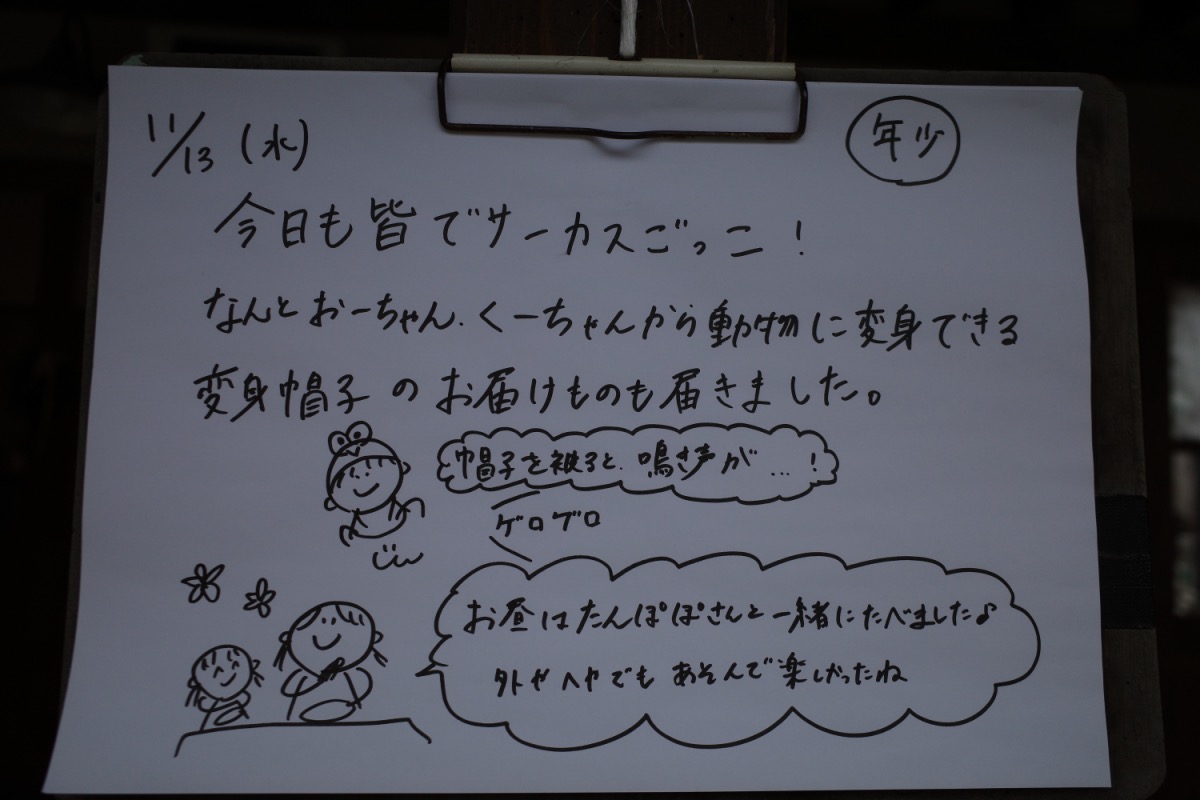 11/13 (水)
年少
今日も皆でサーカスごっこ!
なんとおーちゃん、くーちゃんから動物に変身できる
変身帽子のお届けものも届きました。
帽子を被ると、鳴き声が…!
ゲロゲロ
お昼はたんぽぽさんと一緒にたべました♪
外やヘヤでもあそんで楽しかったね